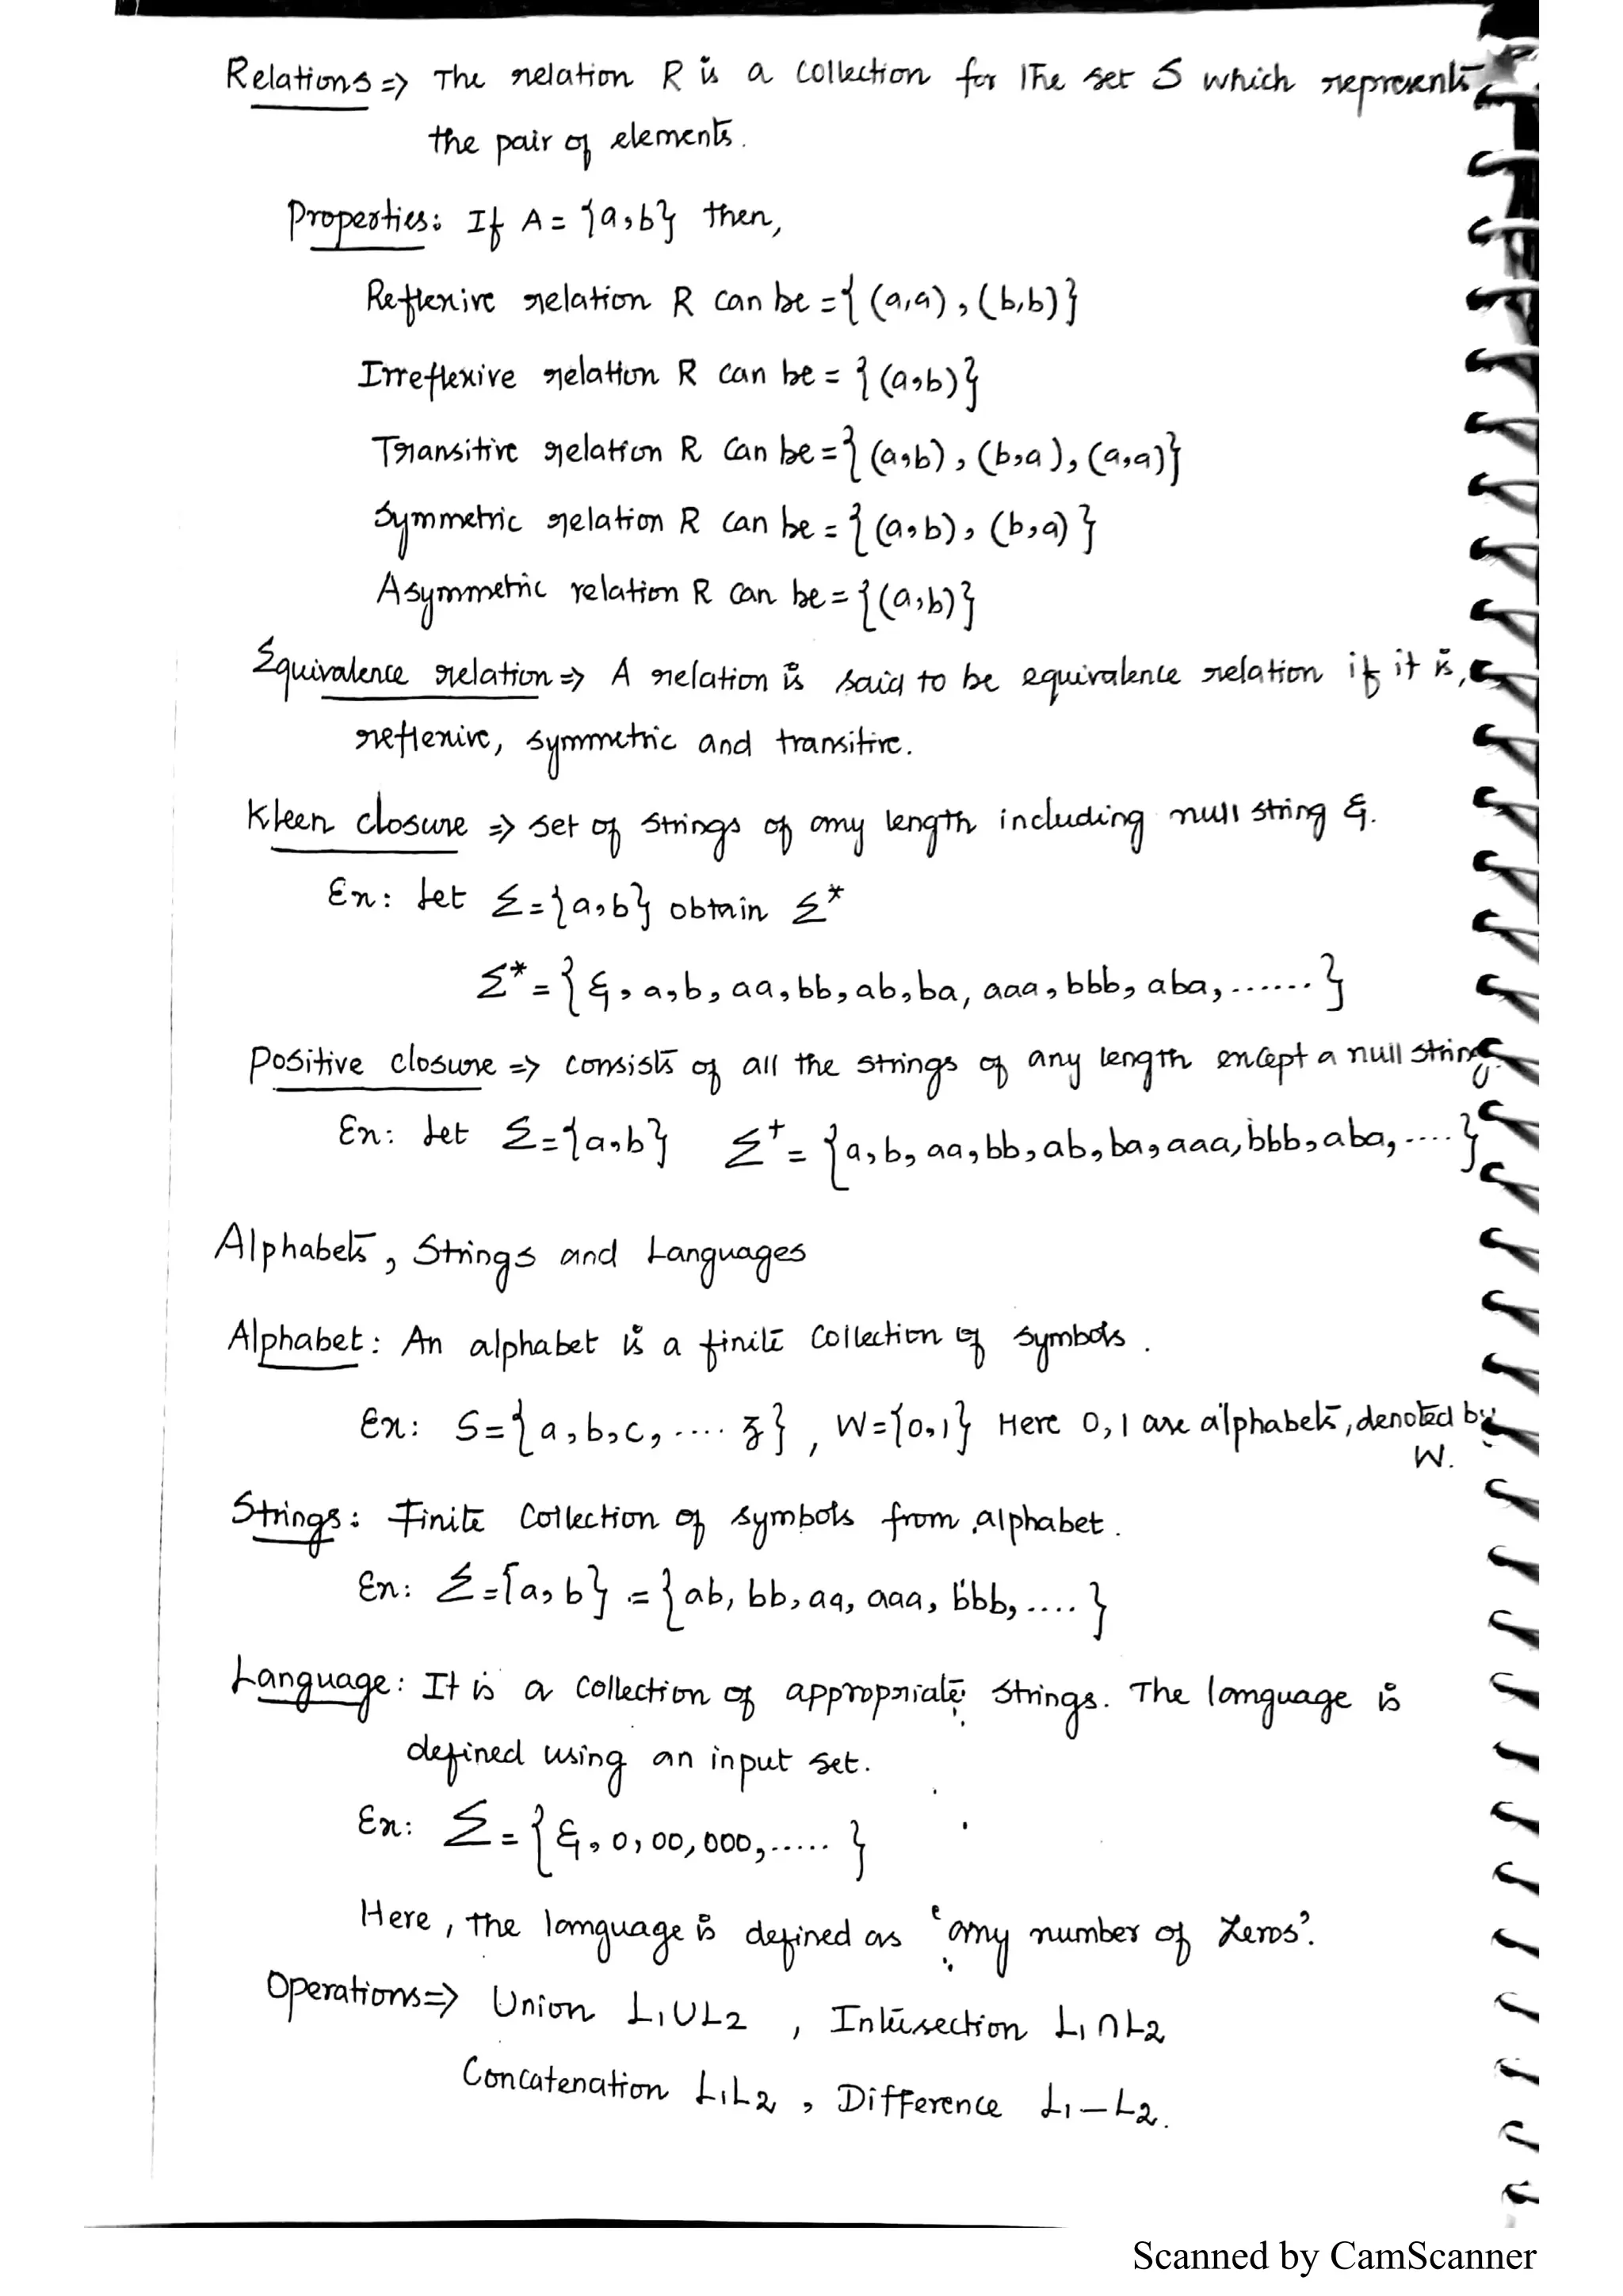 Relations => The relation R is a collection for the set S which represents
the pair of elements.
Properties: If A = {a,b} then,
Reflexive relation R can be = { (a,a), (b,b)}
Irreflexive relation R can be = {(a,b)}
Transitive relation R can be = {(a,b), (b,a), (a,a)}
Symmetric relation R can be = {(a,b), (b,a)}
Asymmetric relation R can be = {(a,b)}
Equivalence relation => A relation is said to be equivalence relation if it is,
reflexive, symmetric and transitive.
Kleen closure => set of strings of any length including null string ε.
Ex: Let Σ={a,b} obtain Σ*
Σ* = {ε, a, b, aa, bb, ab, ba, aaa, bbb, aba, ......}
Positive closure => consists of all the strings of any length except a null string.
Ex: Let Σ={a,b} Σ⁺ = {a, b, aa, bb, ab, ba, aaa, bbb, aba, ....}
Alphabets, Strings and Languages
Alphabet: An alphabet is a finite collection of symbols.
Ex: S={a,b,c, .... z}, W={0,1} Here 0,1 are alphabets, denoted by
W.
Strings: Finite collection of symbols from alphabet.
Ex: Σ={a,b} = {ab, bb, aa, aaa, bbb, ....}
Language: It is a collection of appropriate strings. The language is
defined using an input set.
Ex: Σ = {ε, 0, 00, 000, .....}
Here, the language is defined as 'any number of Zeros'.
Operations => Union L1∪L2, Intersection L1∩L2
Concatenation L1L2, Difference L1-L2.
Scanned by CamScanner